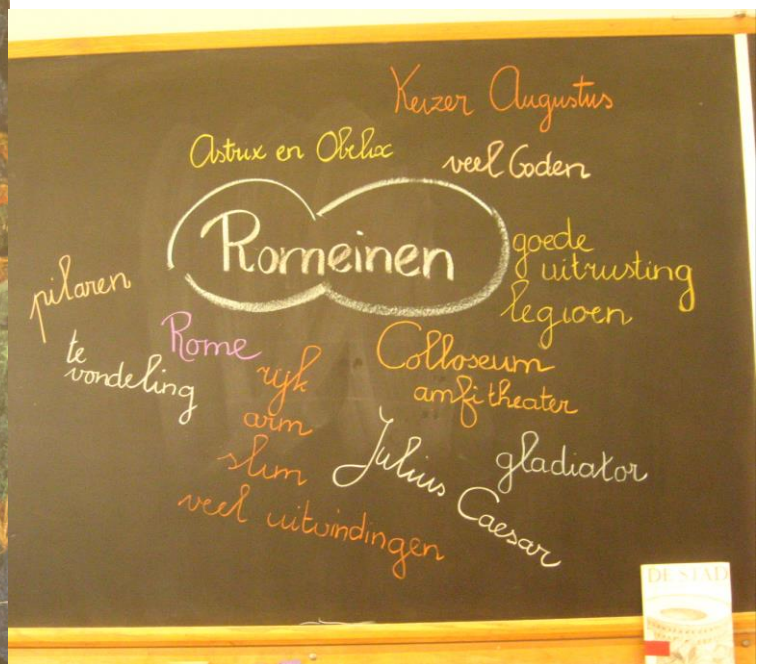 Keizer Augustus
Astrix en Obelix
veel Goden
Romeinen
goede
uitrusting
legioen
pilaren
Rome
te
vondeling
rijk
arm
slim
veel uitvindingen
Colloseum
amfitheater
Julius Caesar
gladiator
DE STAD